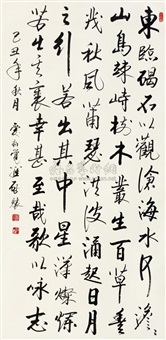 東臨碣石以觀滄海水何澹
山島竦峙樹木叢生百草豐
茂秋風蕭瑟洪波涌起日月
之行若出其中星漢燦爛
若出其裏幸甚至哉歌以詠志
己丑年秋月 愛新覺羅啟驤